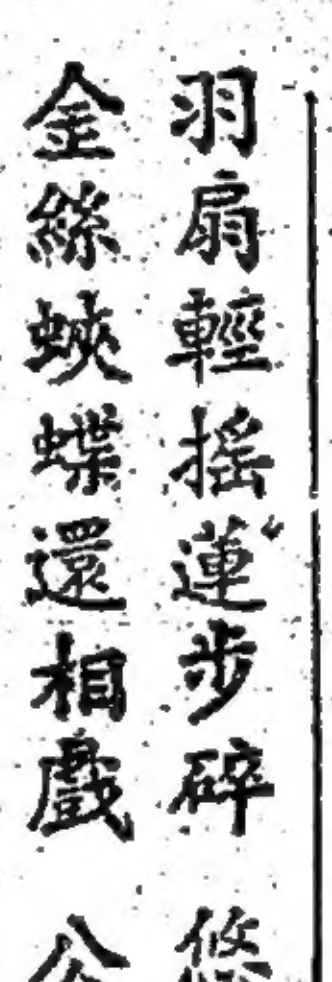 羽扇輕搖蓮步碎 悠
金絲蛺蝶還相戲